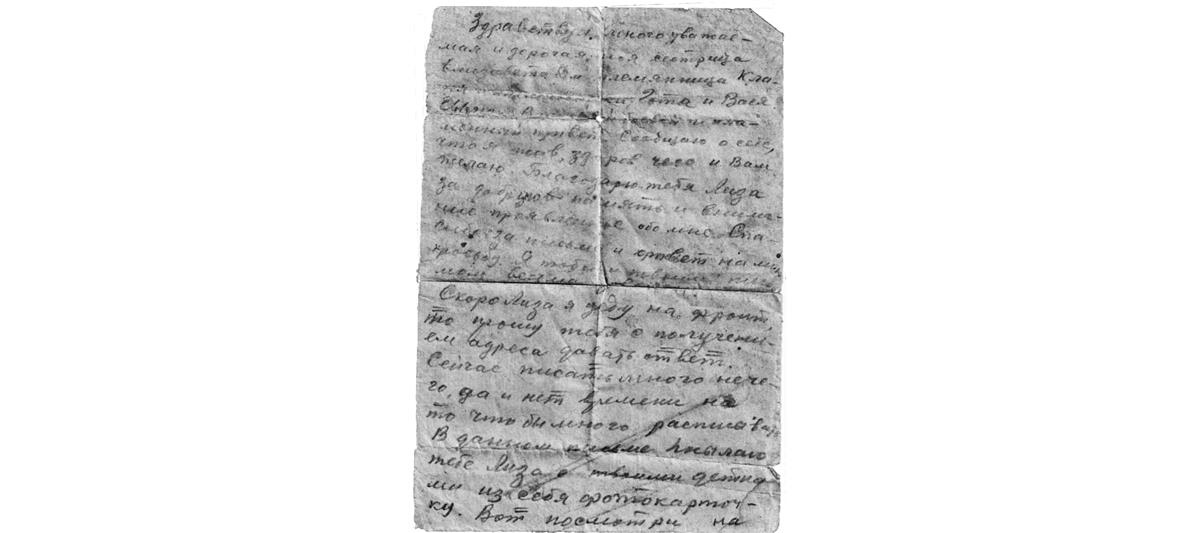 Здравствуй, многоуважае-
мая и дорогая моя сестрица
Елизавета племянница Кла-
Тота и Вася
боевой и пла-
менный привет. Сообщаю о себе,
что я жив, здоров чего и Вам
желаю. Благодарю тебя Лиза
за добрую память и внима-
ние проявленное обо мне. Спа-
сибо за письмо и ответ на мих
мом весьма
Скоро Лиза я уеду на фронт,
то прошу тебя с получени-
ем адреса давать ответ.
Сейчас писать много нече-
го, да и нет времени на
то чтобы много расписывать
В данном письме посылаю
тебе Лиза с твоими детка
ми из себя фотокарточ-
ку. Вот посмотри на